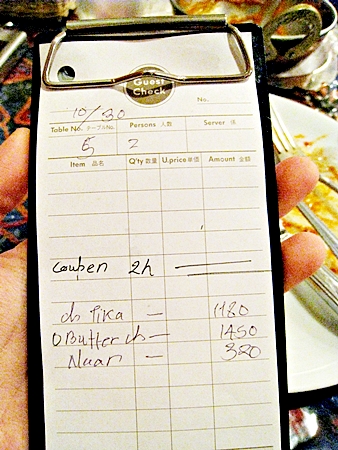 Guest
Check
10/30
No.
Table No. テーブルNo. Persons 人数 Server 係
5 2
Item 品名 Q'ty 数量 U.price 単価 Amount 金額
Coupen 2h
ch Tika — 1180
Butter ch — 1450
Naan — 320